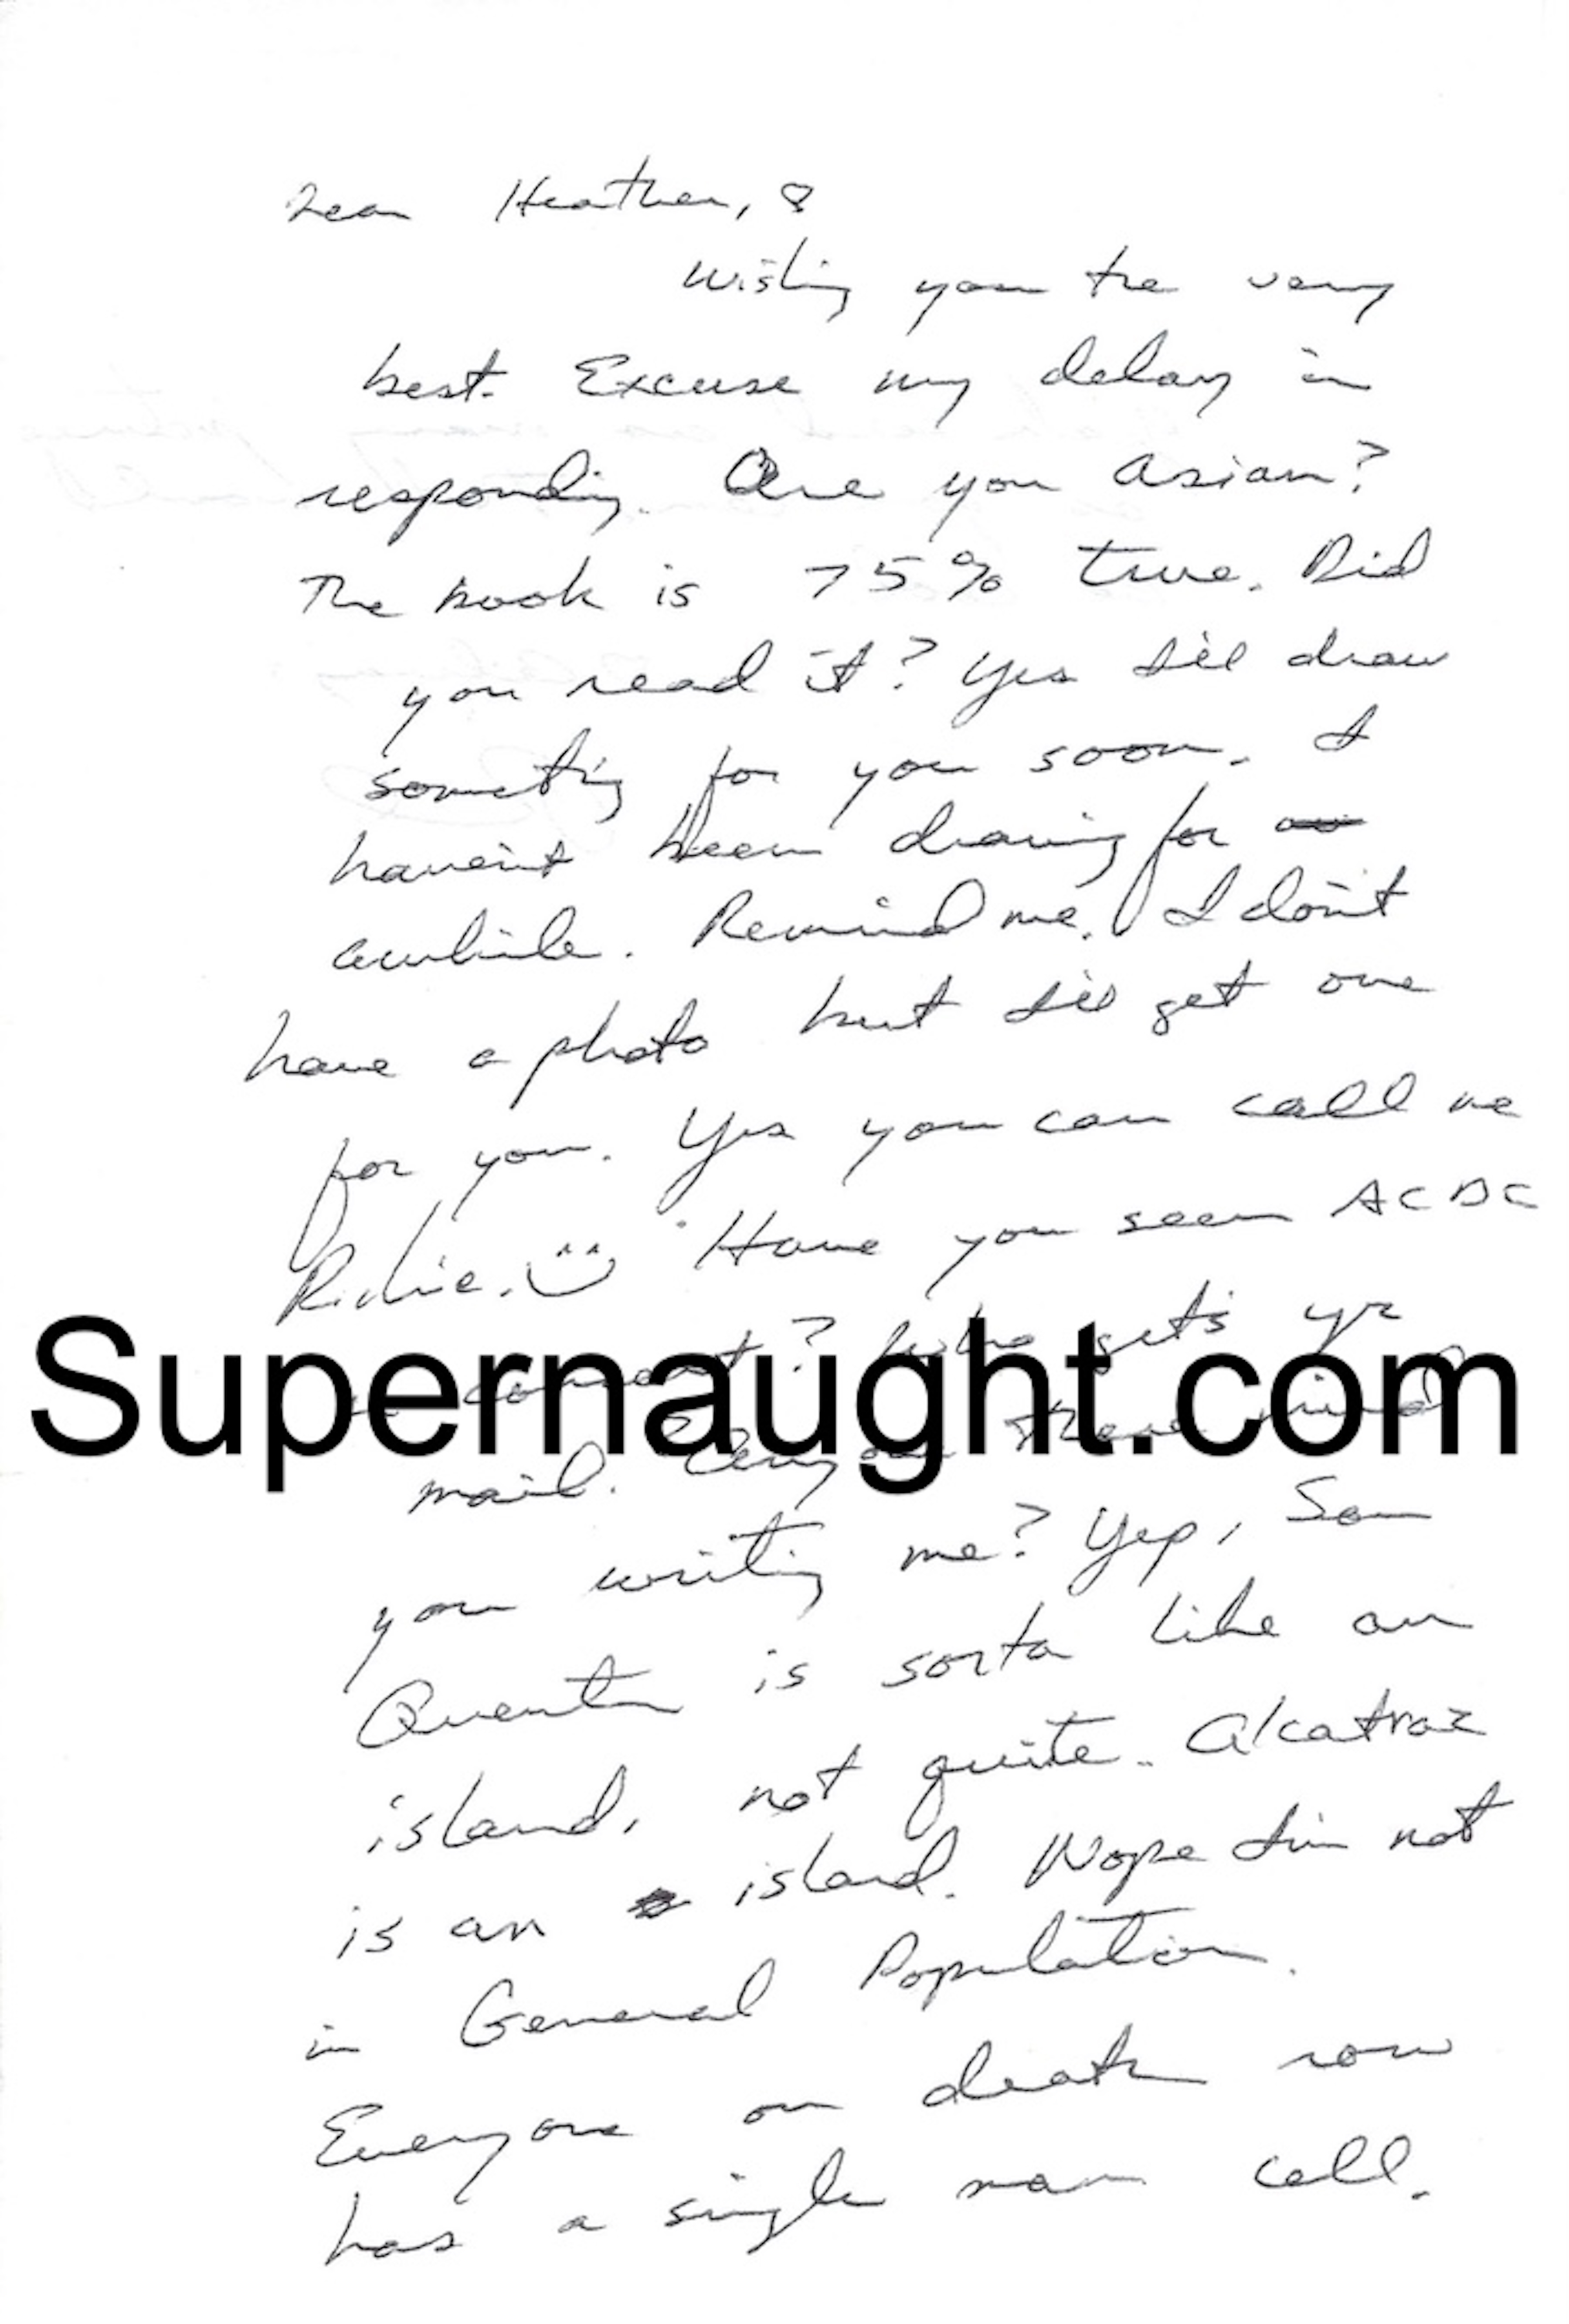 Dear Heather,
Wishing you the very
best. Excuse my delay in
responding. Are you Asian?
The book is 75% true. Did
you read it? Yes I'll draw
something for you soon. I
haven't been drawing for
awhile. Remind me. I don't
have a photo but I'll get one
for you. Yes you can call me
Richie. Have you seen ACDC
in concert? Who gets yr
Supernaught.com
mail. Anyone there mind
you writing me? Yep, San
Quentin is sorta like an
island, not quite. Alcatraz
is an island. Nope I'm not
in General Population.
Everyone on death row
has a single man cell.